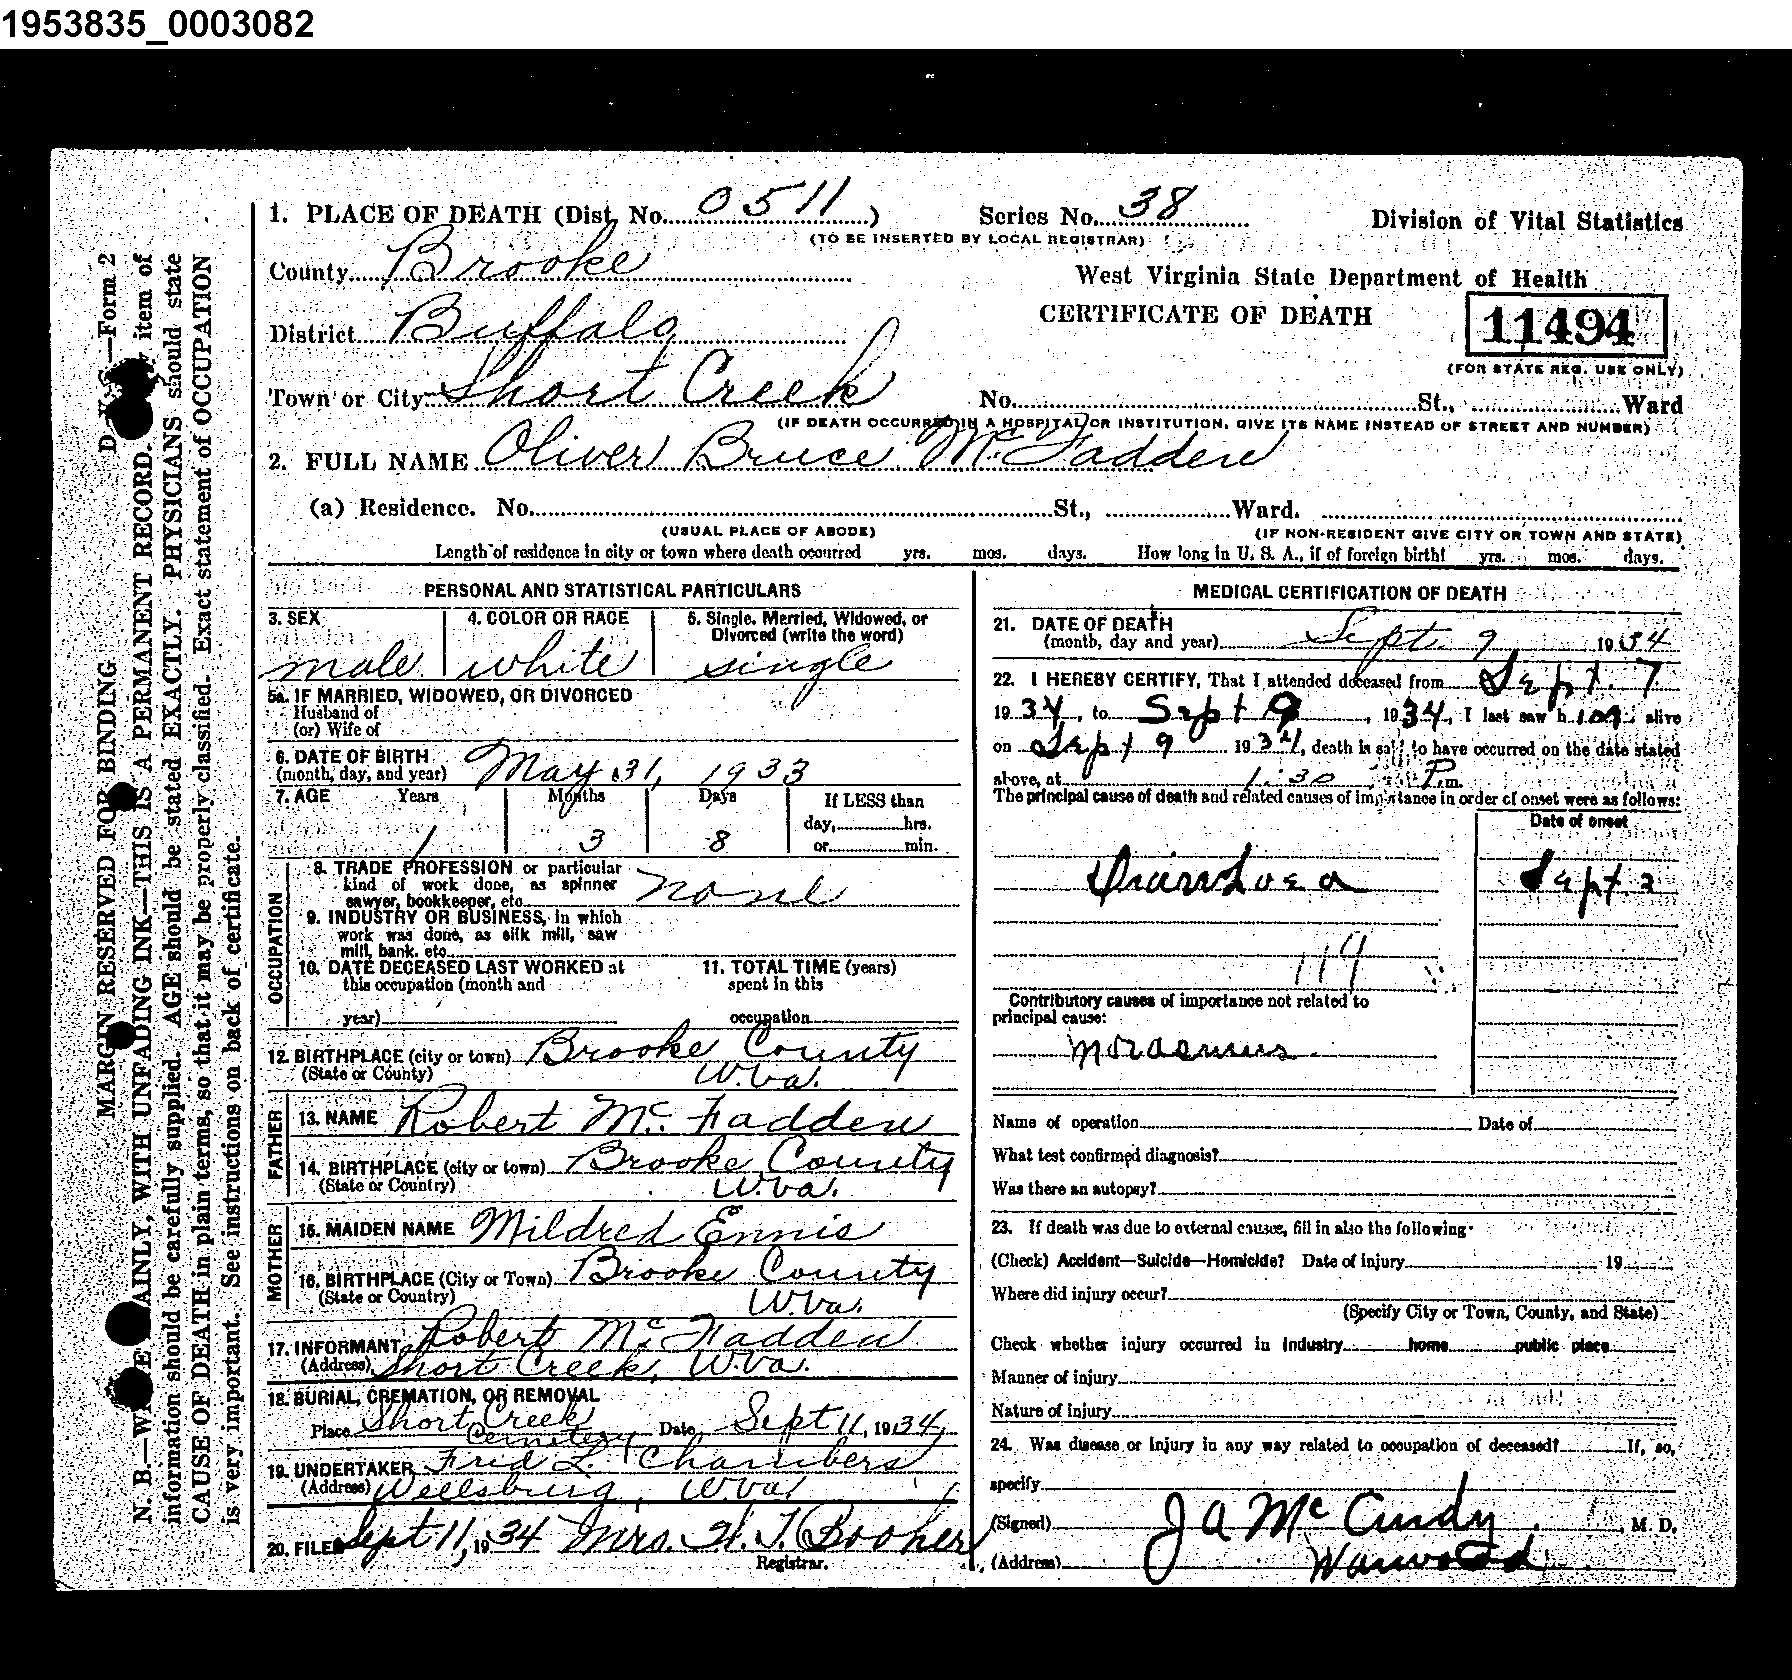 1953835_0003082
1. PLACE OF DEATH (Dist. No. 0511)
Series No. 38
Division of Vital Statistics
(TO BE INSERTED BY LOCAL REGISTRAR)
County Brooke
West Virginia State Department of Health
CERTIFICATE OF DEATH
11494
(FOR STATE REG. USE ONLY)
District Buffalo
Town or City Short Creek
No. St., Ward
(IF DEATH OCCURRED IN A HOSPITAL OR INSTITUTION, GIVE ITS NAME INSTEAD OF STREET AND NUMBER)
2. FULL NAME Oliver Bruce McFadden
(a) Residence. No. St., Ward.
(USUAL PLACE OF ABODE)
(IF NON-RESIDENT GIVE CITY OR TOWN AND STATE)
Length of residence in city or town where death occurred yrs. mos. days. How long in U. S. A., if of foreign birth? yrs. mos. days.
PERSONAL AND STATISTICAL PARTICULARS
3. SEX
male
4. COLOR OR RACE
white
5. Single, Married, Widowed, or
Divorced (write the word)
single
5a. IF MARRIED, WIDOWED, OR DIVORCED
Husband of
(or) Wife of
6. DATE OF BIRTH
(month, day, and year) May 31, 1933
7. AGE Years Months Days
1 3 8
If LESS than
day, hrs.
or min.
OCCUPATION
8. TRADE PROFESSION or particular
kind of work done, as spinner
sawyer, bookkeeper, etc. none
9. INDUSTRY OR BUSINESS, in which
work was done, as silk mill, saw
mill, bank, etc.
10. DATE DECEASED LAST WORKED at
this occupation (month and
year)
11. TOTAL TIME (years)
spent in this
occupation
12. BIRTHPLACE (city or town) Brooke County
(State or County) W.Va.
FATHER
13. NAME Robert McFadden
14. BIRTHPLACE (city or town) Brooke County
(State or Country) W.Va.
MOTHER
15. MAIDEN NAME Mildred Ennis
16. BIRTHPLACE (City or Town) Brooke County
(State or Country) W.Va.
17. INFORMANT Robert McFadden
(Address) Short Creek, W.Va.
18. BURIAL, CREMATION, OR REMOVAL
Place Short Creek Cemetery Date Sept 11, 1934
19. UNDERTAKER Fred L. Chambers
(Address) Wellsburg, W.Va.
20. FILED Sept 11, 1934 Mrs. H. T. Booher
Registrar.
MEDICAL CERTIFICATION OF DEATH
21. DATE OF DEATH
(month, day and year) Sept. 9 1934
22. I HEREBY CERTIFY, That I attended deceased from Sept. 7
1934, to Sept 9, 1934, I last saw him alive
on Sept 9 1934, death is said to have occurred on the date stated
above, at 1:30 P.m.
The principal cause of death and related causes of importance in order of onset were as follows:
Date of onset
Sept. 2
119
Contributory causes of importance not related to
principal cause:
Name of operation Date of
What test confirmed diagnosis?
Was there an autopsy?
23. If death was due to external causes, fill in also the following:
(Check) Accident—Suicide—Homicide? Date of injury 19
Where did injury occur?
(Specify City or Town, County, and State)
Check whether injury occurred in industry home public place
Manner of injury
Nature of injury
24. Was disease or injury in any way related to occupation of deceased? If, so,
specify
(Signed) J A McCurdy, M. D.
(Address) Warwood
MARGIN RESERVED FOR BINDING
—Form 2
AINLY, WITH UNFADING INK—THIS IS A PERMANENT RECORD. item of
information should be carefully supplied. AGE should be stated EXACTLY. PHYSICIANS should state
CAUSE OF DEATH in plain terms, so that it may be properly classified. Exact statement of OCCUPATION
is very important. See instructions on back of certificate.